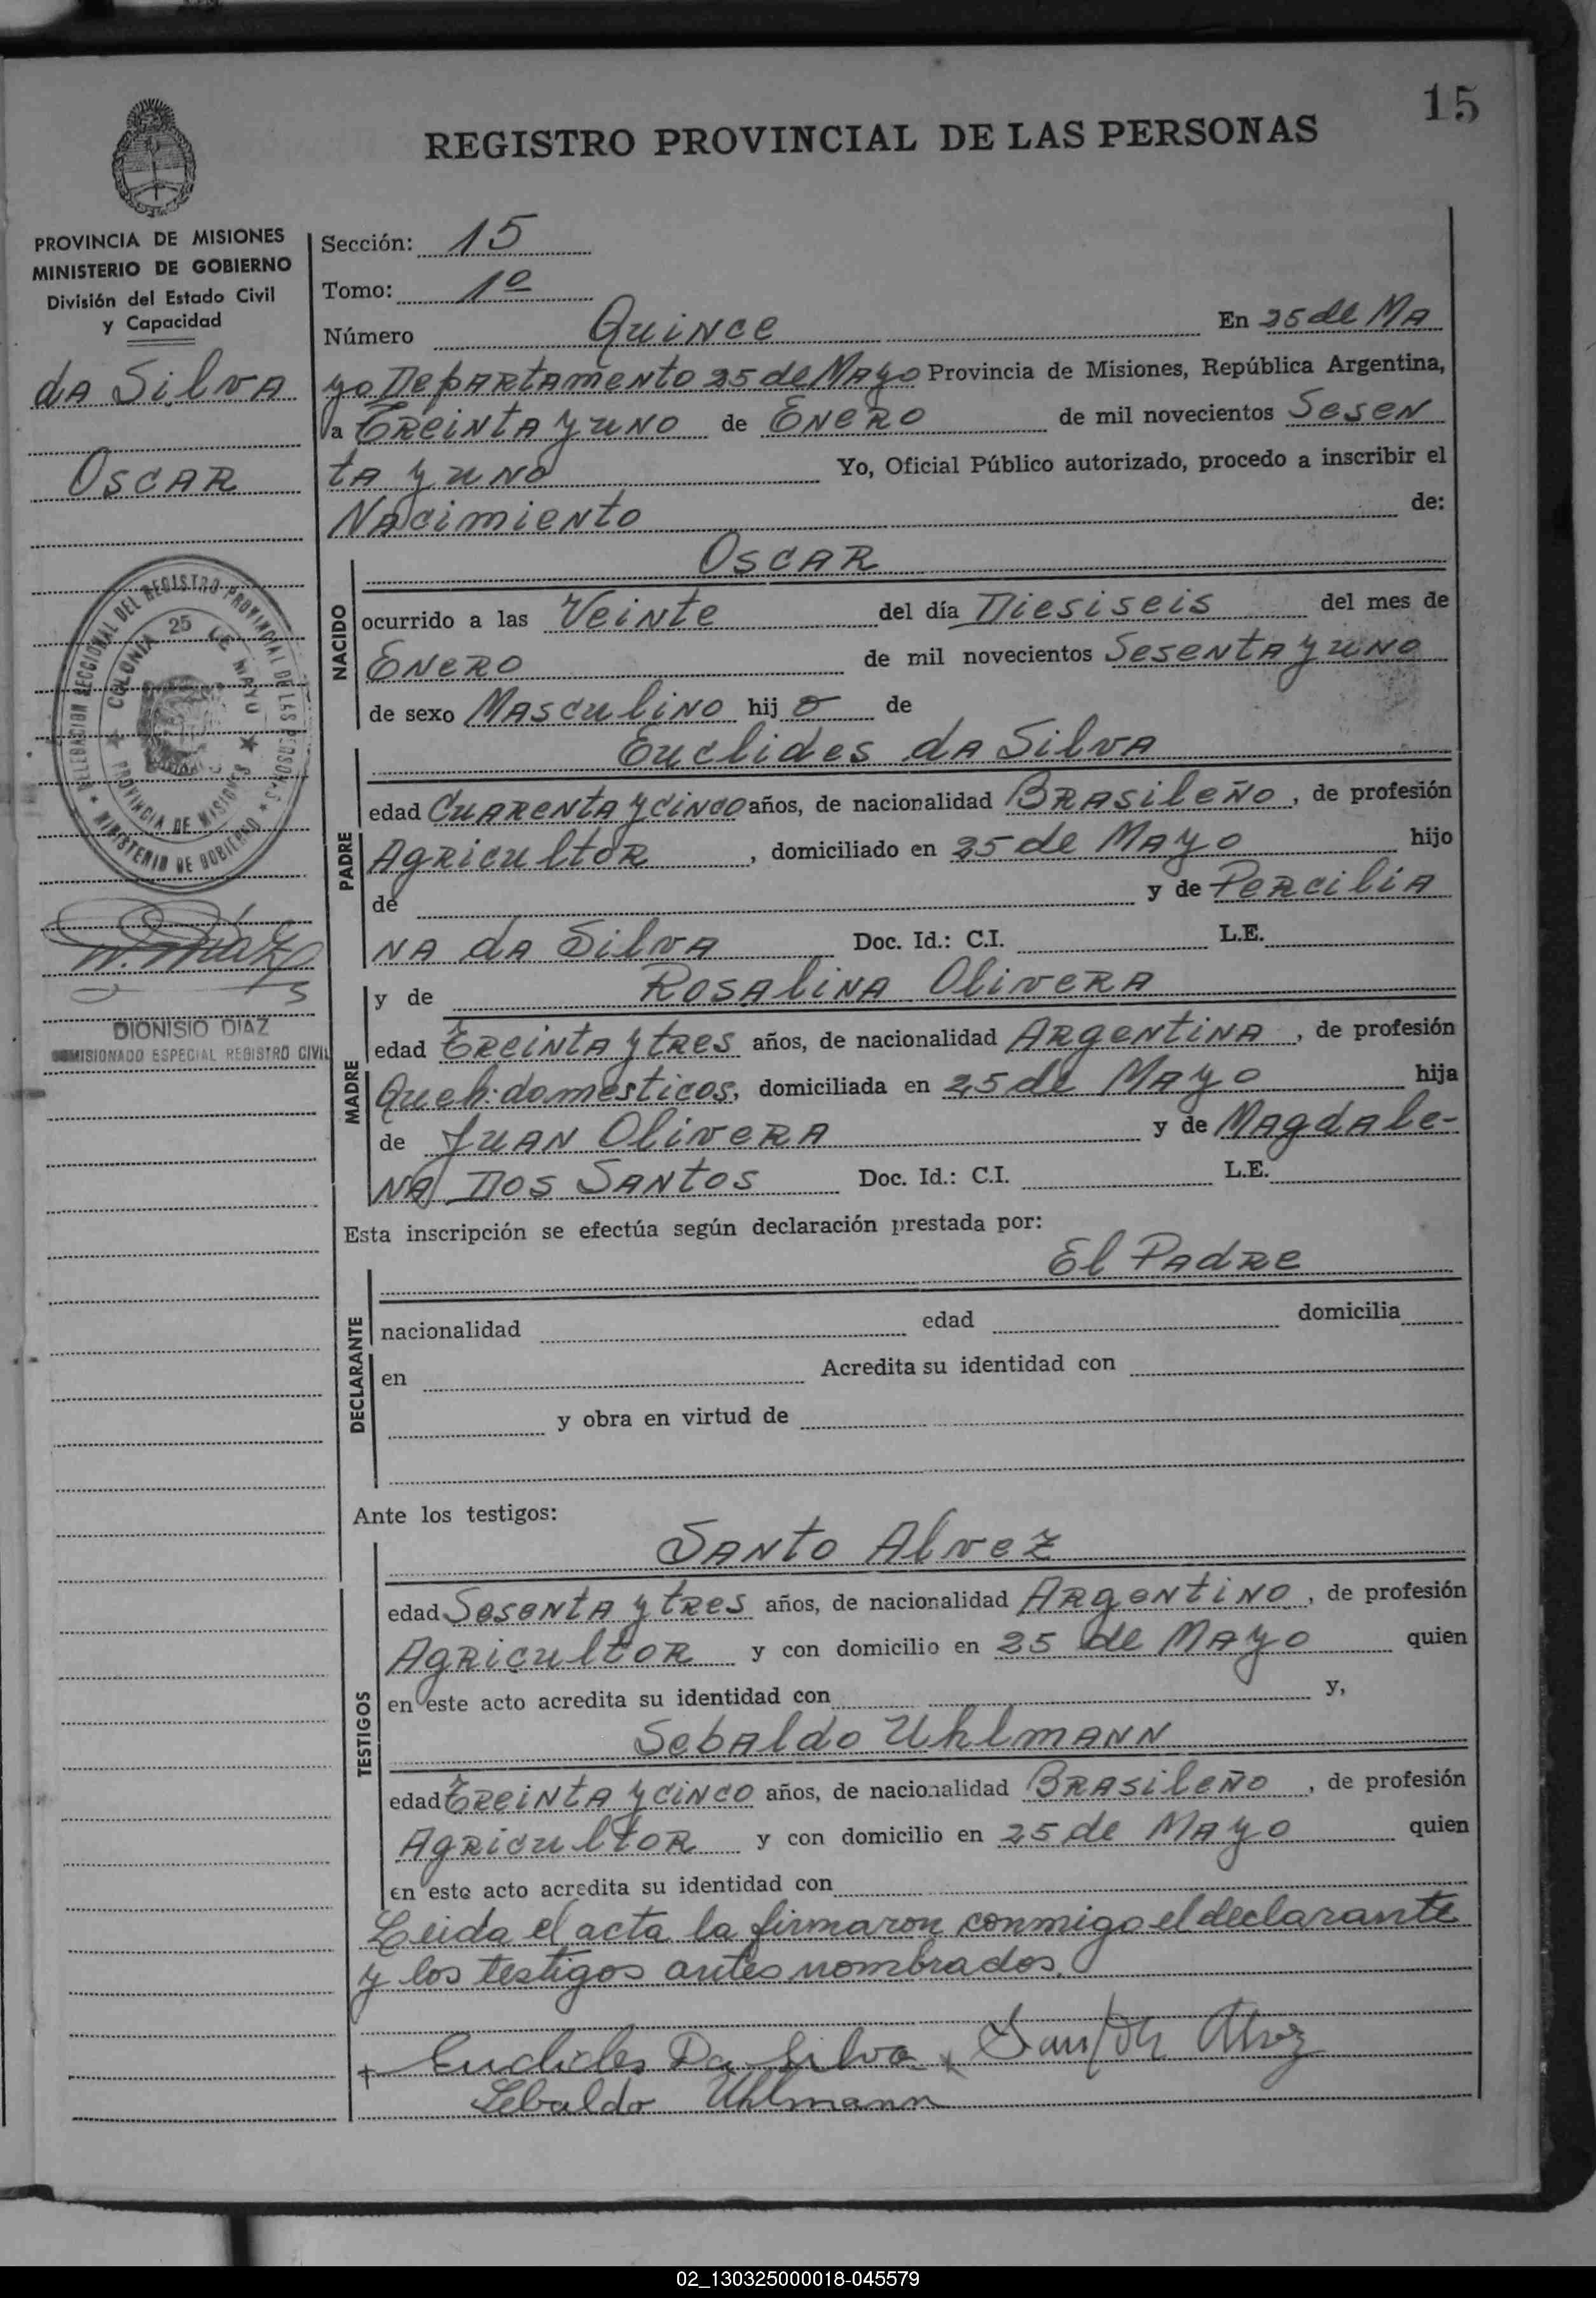 15
REGISTRO PROVINCIAL DE LAS PERSONAS
PROVINCIA DE MISIONES
MINISTERIO DE GOBIERNO
División del Estado Civil
y Capacidad
da Silva
Oscar
DELEGACION SECCIONAL DEL REGISTRO PROVINCIAL DE LAS PERSONAS
COLONIA 25 DE MAYO
PROVINCIA DE MISIONES
MINISTERIO DE GOBIERNO
DIONISIO DIAZ
COMISIONADO ESPECIAL REGISTRO CIVIL
Sección: 15
Tomo: 1º
Número Quince En 25 de Ma
yo Departamento 25 de Mayo Provincia de Misiones, República Argentina,
a Treinta y uno de Enero de mil novecientos Sesen
ta y uno Yo, Oficial Público autorizado, procedo a inscribir el
Nacimiento de:
Oscar
NACIDO
ocurrido a las Veinte del día Diesiseis del mes de
Enero de mil novecientos Sesenta y uno
de sexo Masculino hij o de
Euclides da Silva
PADRE
edad Cuarenta y cinco años, de nacionalidad Brasileño, de profesión
Agricultor, domiciliado en 25 de Mayo hijo
de y de Percilia
na da Silva Doc. Id.: C.I. L.E.
y de Rosalina Olivera
MADRE
edad Treinta y tres años, de nacionalidad Argentina, de profesión
Queh. domesticos, domiciliada en 25 de Mayo hija
de Juan Olivera y de Magdale-
na Dos Santos Doc. Id.: C.I. L.E.
Esta inscripción se efectúa según declaración prestada por:
El Padre
DECLARANTE
nacionalidad edad domicilia
en Acredita su identidad con
y obra en virtud de
Ante los testigos:
Santo Alvez
TESTIGOS
edad Sesenta y tres años, de nacionalidad Argentino, de profesión
Agricultor y con domicilio en 25 de Mayo quien
en este acto acredita su identidad con y,
Sebaldo Uhlmann
edad Treinta y cinco años, de nacionalidad Brasileño, de profesión
Agricultor y con domicilio en 25 de Mayo quien
en este acto acredita su identidad con
Leida el acta la firmaron conmigo el declarante
y los testigos antes nombrados.
Euclides Da Silva Alvez
Sebaldo Uhlmann
02_130325000018-045579